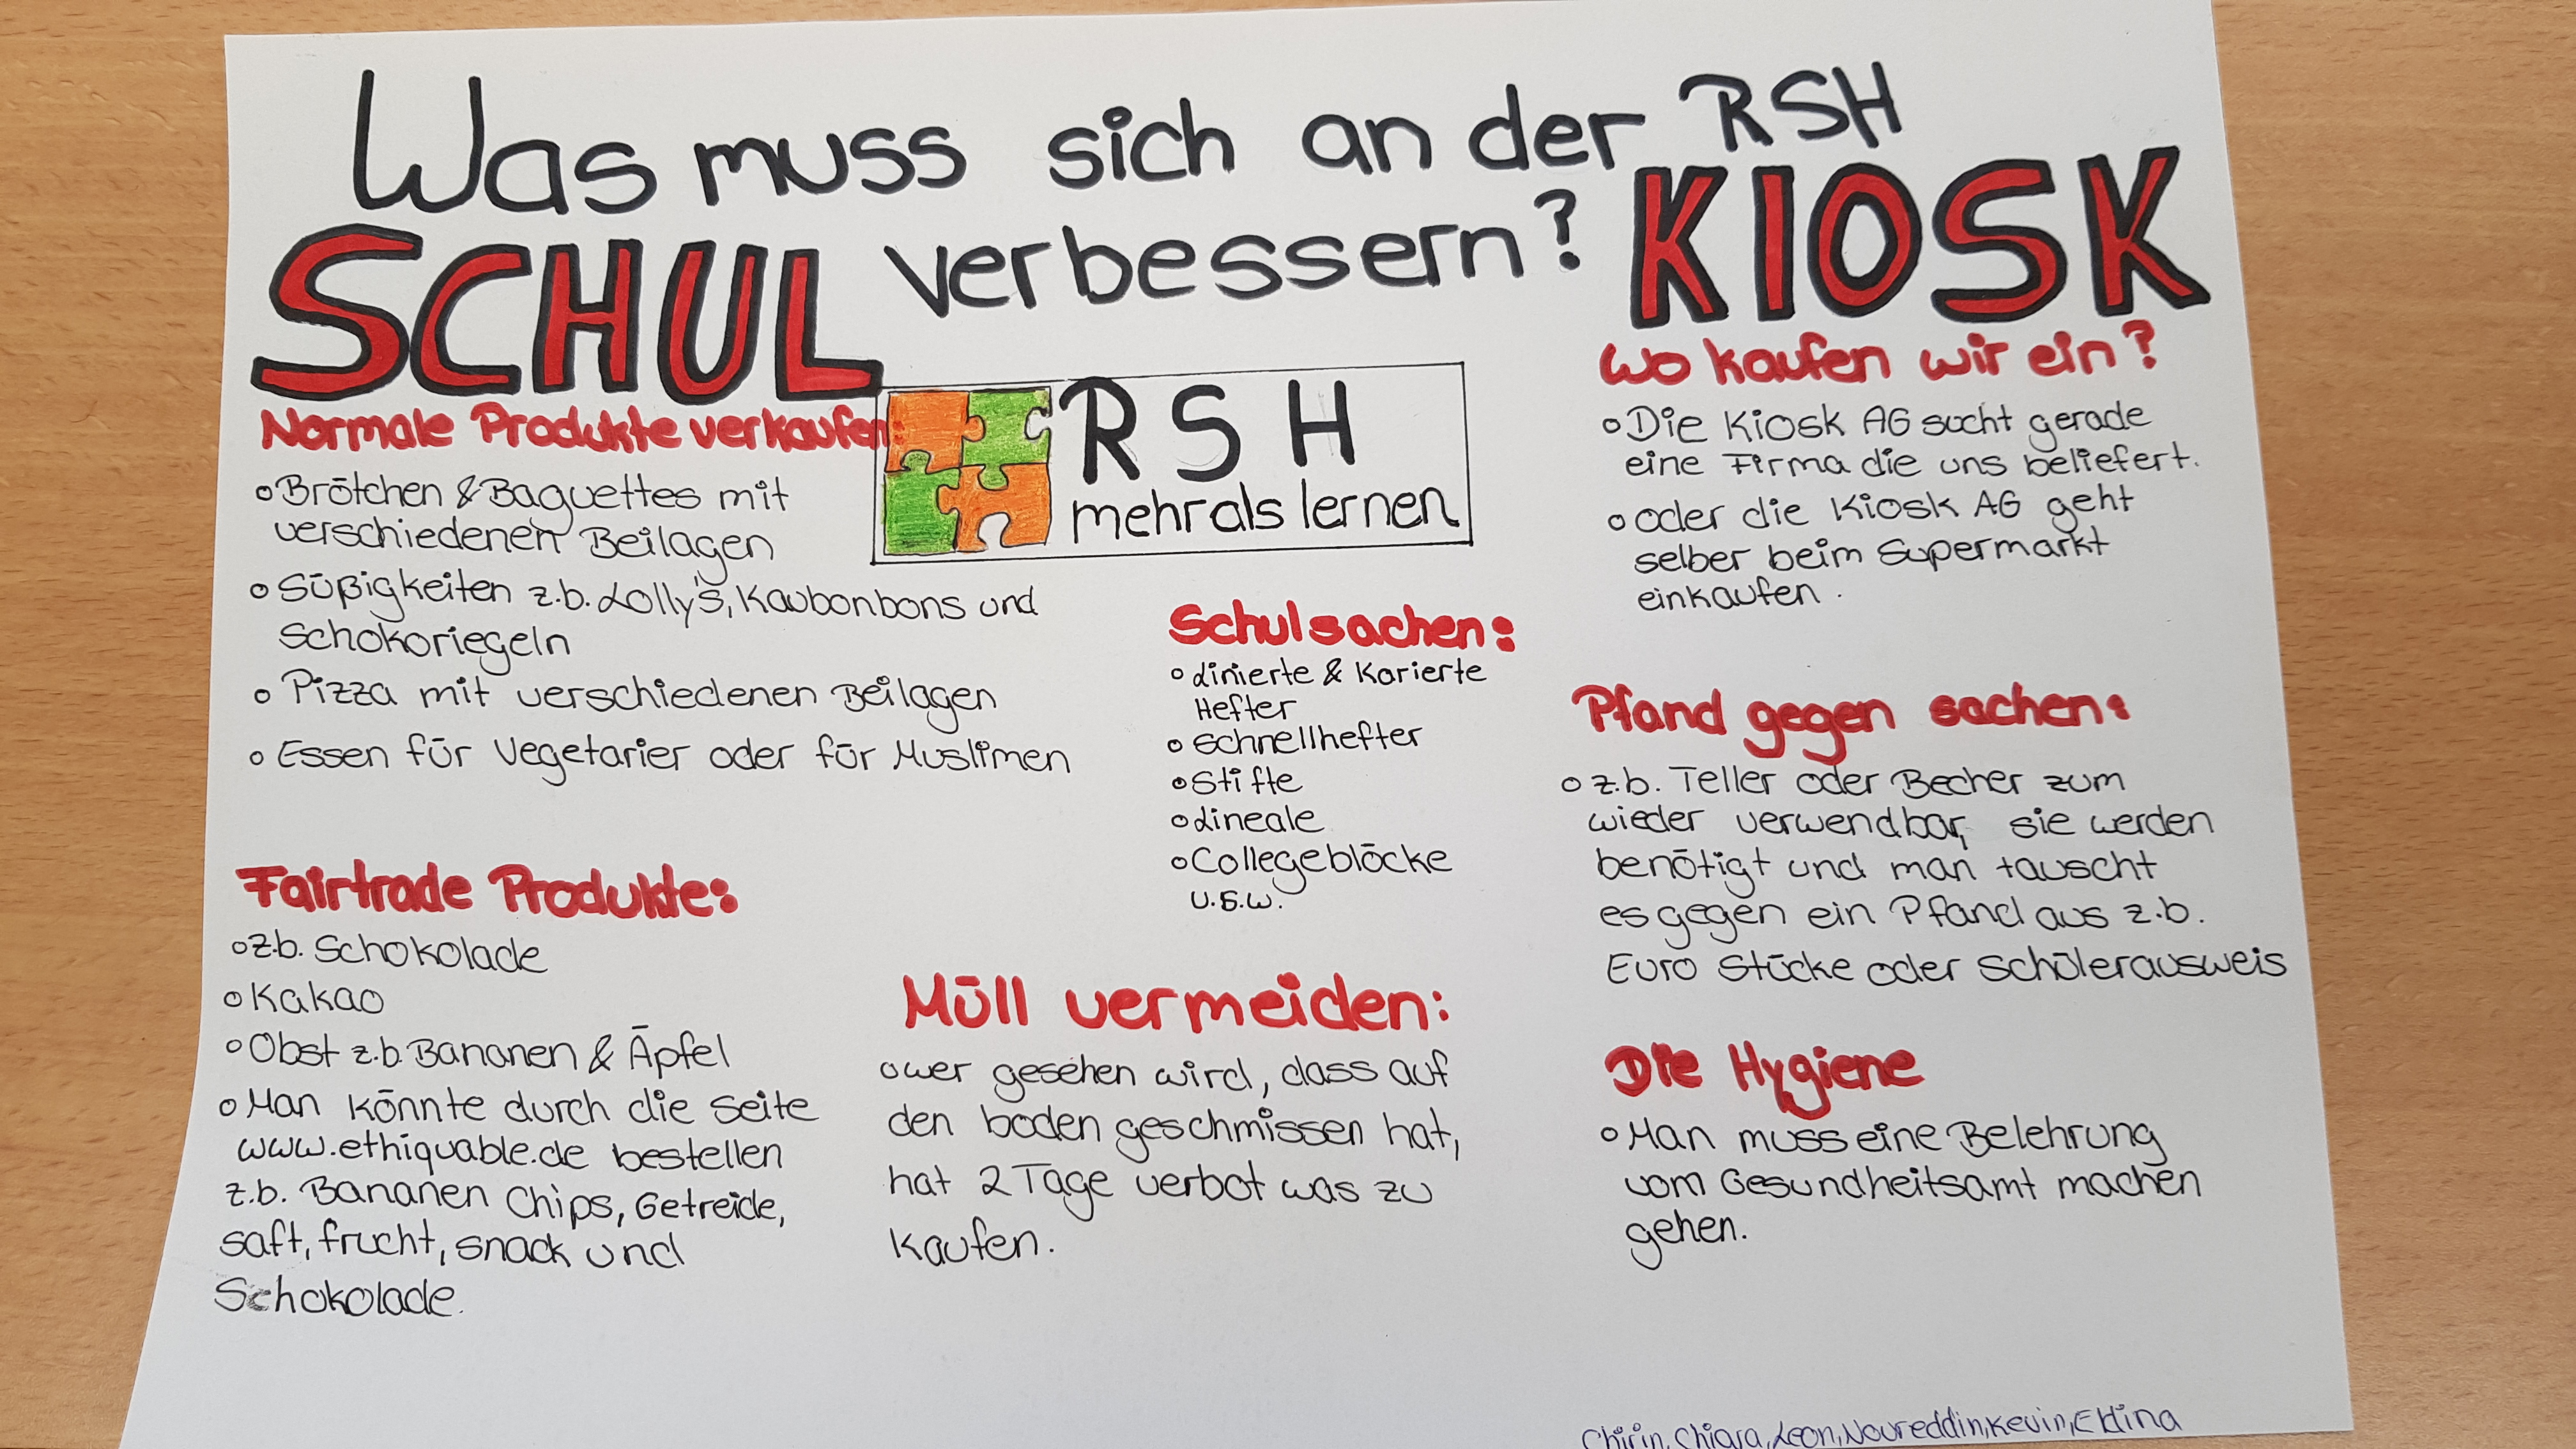 Was muss sich an der RSH
verbessern?
SCHUL
KIOSK
RSH
mehr als lernen
Normale Produkte verkaufen:
○ Brötchen & Baguettes mit
verschiedenen Beilagen
○ Süßigkeiten z.b. Lolly's, Kaubonbons und
Schokoriegeln
○ Pizza mit verschiedenen Beilagen
○ Essen für Vegetarier oder für Muslimen
Fairtrade Produkte:
○ z.b. Schokolade
○ Kakao
○ Obst z.b. Bananen & Äpfel
○ Man könnte durch die Seite
www.ethiquable.de bestellen
z.b. Bananen Chips, Getreide,
saft, frucht, snack und
Schokolade.
Schulsachen:
○ Linierte & Karierte
Hefter
○ Schnellhefter
○ Stifte
○ Lineale
○ Collegeblöcke
u.s.w.
Müll vermeiden:
○ wer gesehen wird, dass auf
den boden geschmissen hat,
hat 2 Tage verbot was zu
kaufen.
Wo kaufen wir ein?
○ Die Kiosk AG sucht gerade
eine Firma die uns beliefert.
○ oder die Kiosk AG geht
selber beim Supermarkt
einkaufen.
Pfand gegen sachen:
○ z.b. Teller oder Becher zum
wieder verwendbar, sie werden
benötigt und man tauscht
es gegen ein Pfand aus z.b.
Euro Stücke oder Schülerausweis
Die Hygiene
○ Man muss eine Belehrung
vom Gesundheitsamt machen
gehen.
Chirin, Chiara, Leon, Noureddin, Kevin,